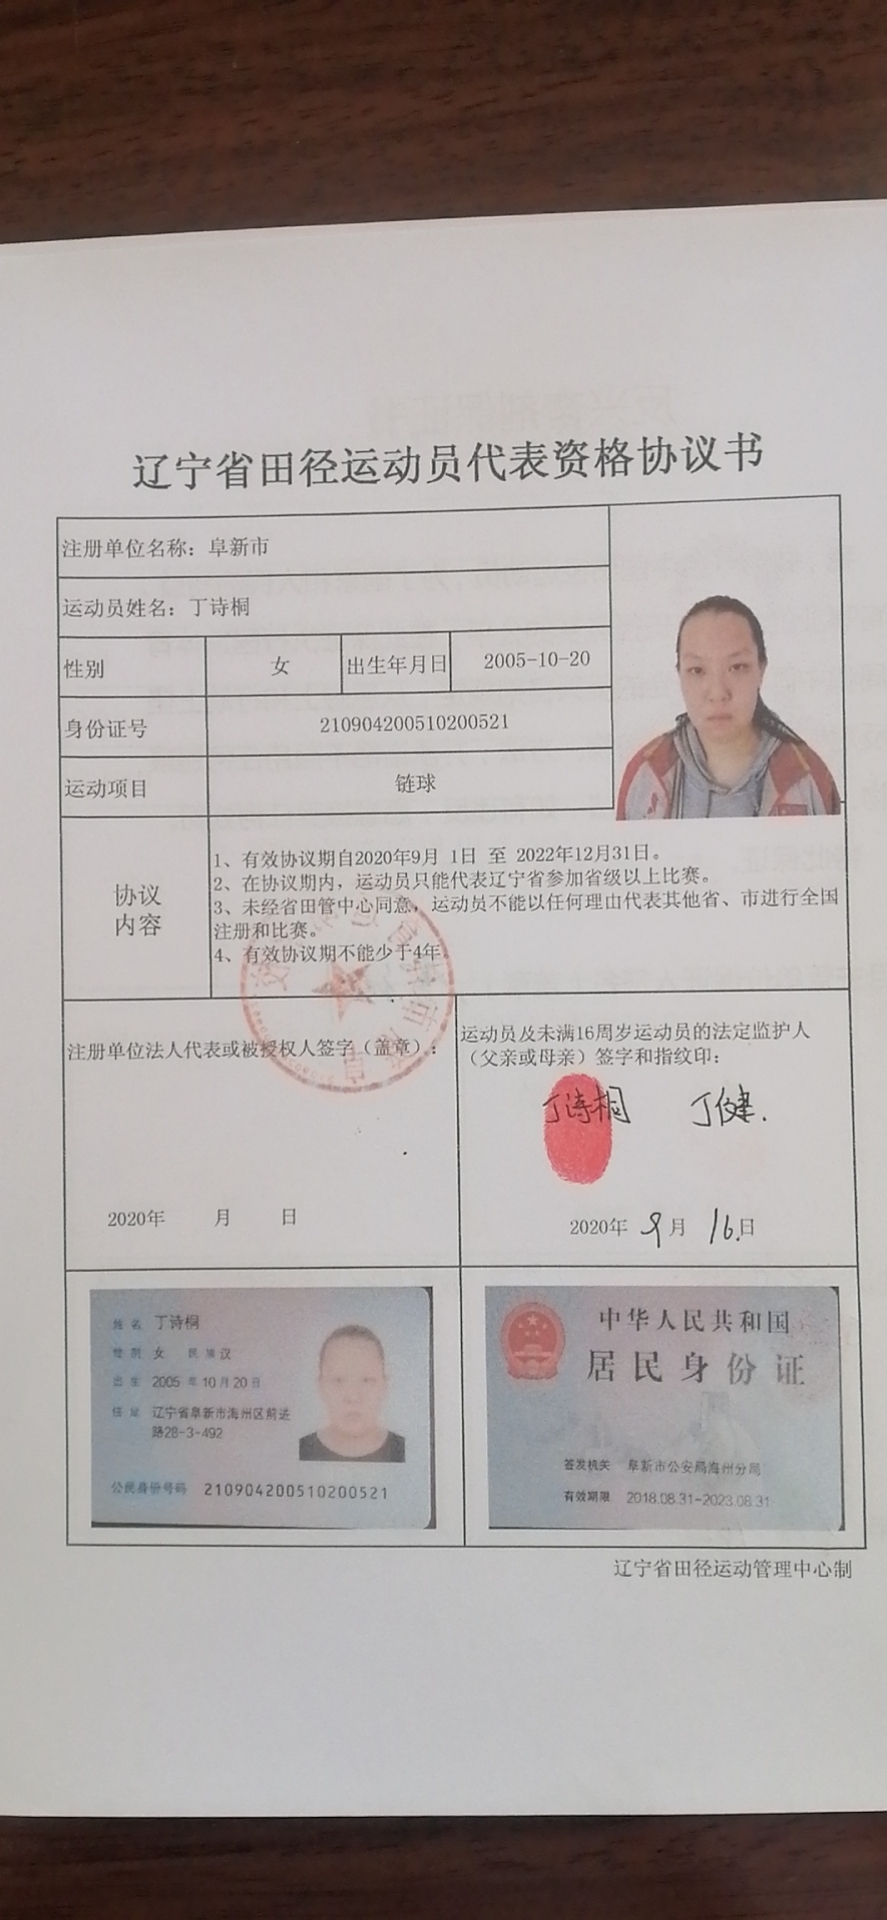 辽宁省田径运动员代表资格协议书
注册单位名称：阜新市
运动员姓名：丁诗桐
性别 女 出生年月日 2005-10-20
身份证号 210904200510200521
运动项目 链球
协议
内容
1、有效协议期自2020年9月 1日 至 2022年12月31日。
2、在协议期内，运动员只能代表辽宁省参加省级以上比赛。
3、未经省田管中心同意，运动员不能以任何理由代表其他省、市进行全国
注册和比赛。
4、有效协议期不能少于4年。
注册单位法人代表或被授权人签字（盖章）：
2020年 月 日
运动员及未满16周岁运动员的法定监护人
（父亲或母亲）签字和指纹印：
丁诗桐 丁健.
2020年 9月 16日
姓名 丁诗桐
性别 女 民族 汉
出生 2005 年 10 月 20 日
住址 辽宁省阜新市海州区前进
路28-3-492
公民身份号码 210904200510200521
中华人民共和国
居民身份证
签发机关 阜新市公安局海州分局
有效期限 2018.08.31-2023.08.31
辽宁省田径运动管理中心制